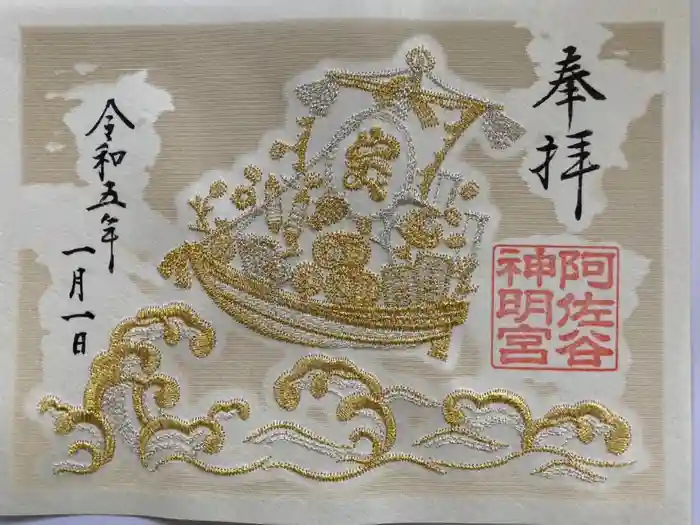 奉拝
阿佐谷
神明宮
令和五年
一月一日